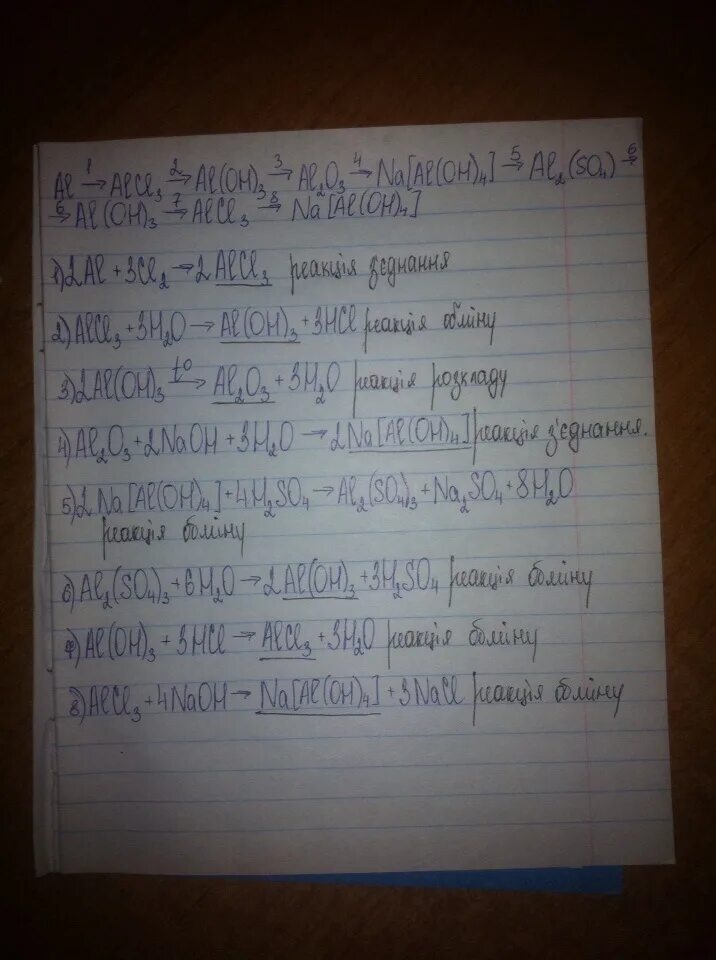 Al 1→ AlCl₃ 2→ Al(OH)₃ 3→ Al₂O₃ 4→ Na[Al(OH)₄] 5→ Al₂(SO₄) 6→
6→ Al(OH)₃ 7→ AlCl₃ 8→ Na[Al(OH)₄]
1) 2Al + 3Cl₂ → 2AlCl₃ реакція з'єднання
2) AlCl₃ + 3H₂O → Al(OH)₃ + 3HCl реакція обміну
3) 2Al(OH)₃ t° → Al₂O₃ + 3H₂O реакція розкладу
4) Al₂O₃ + 2NaOH + 3H₂O → 2Na[Al(OH)₄] реакція з'єднання.
5) 2Na[Al(OH)₄] + 4H₂SO₄ → Al₂(SO₄)₃ + Na₂SO₄ + 8H₂O
реакція обміну
6) Al₂(SO₄)₃ + 6H₂O → 2Al(OH)₃ + 3H₂SO₄ реакція обміну
7) Al(OH)₃ + 3HCl → AlCl₃ + 3H₂O реакція обміну
8) AlCl₃ + 4NaOH → Na[Al(OH)₄] + 3NaCl реакція обміну